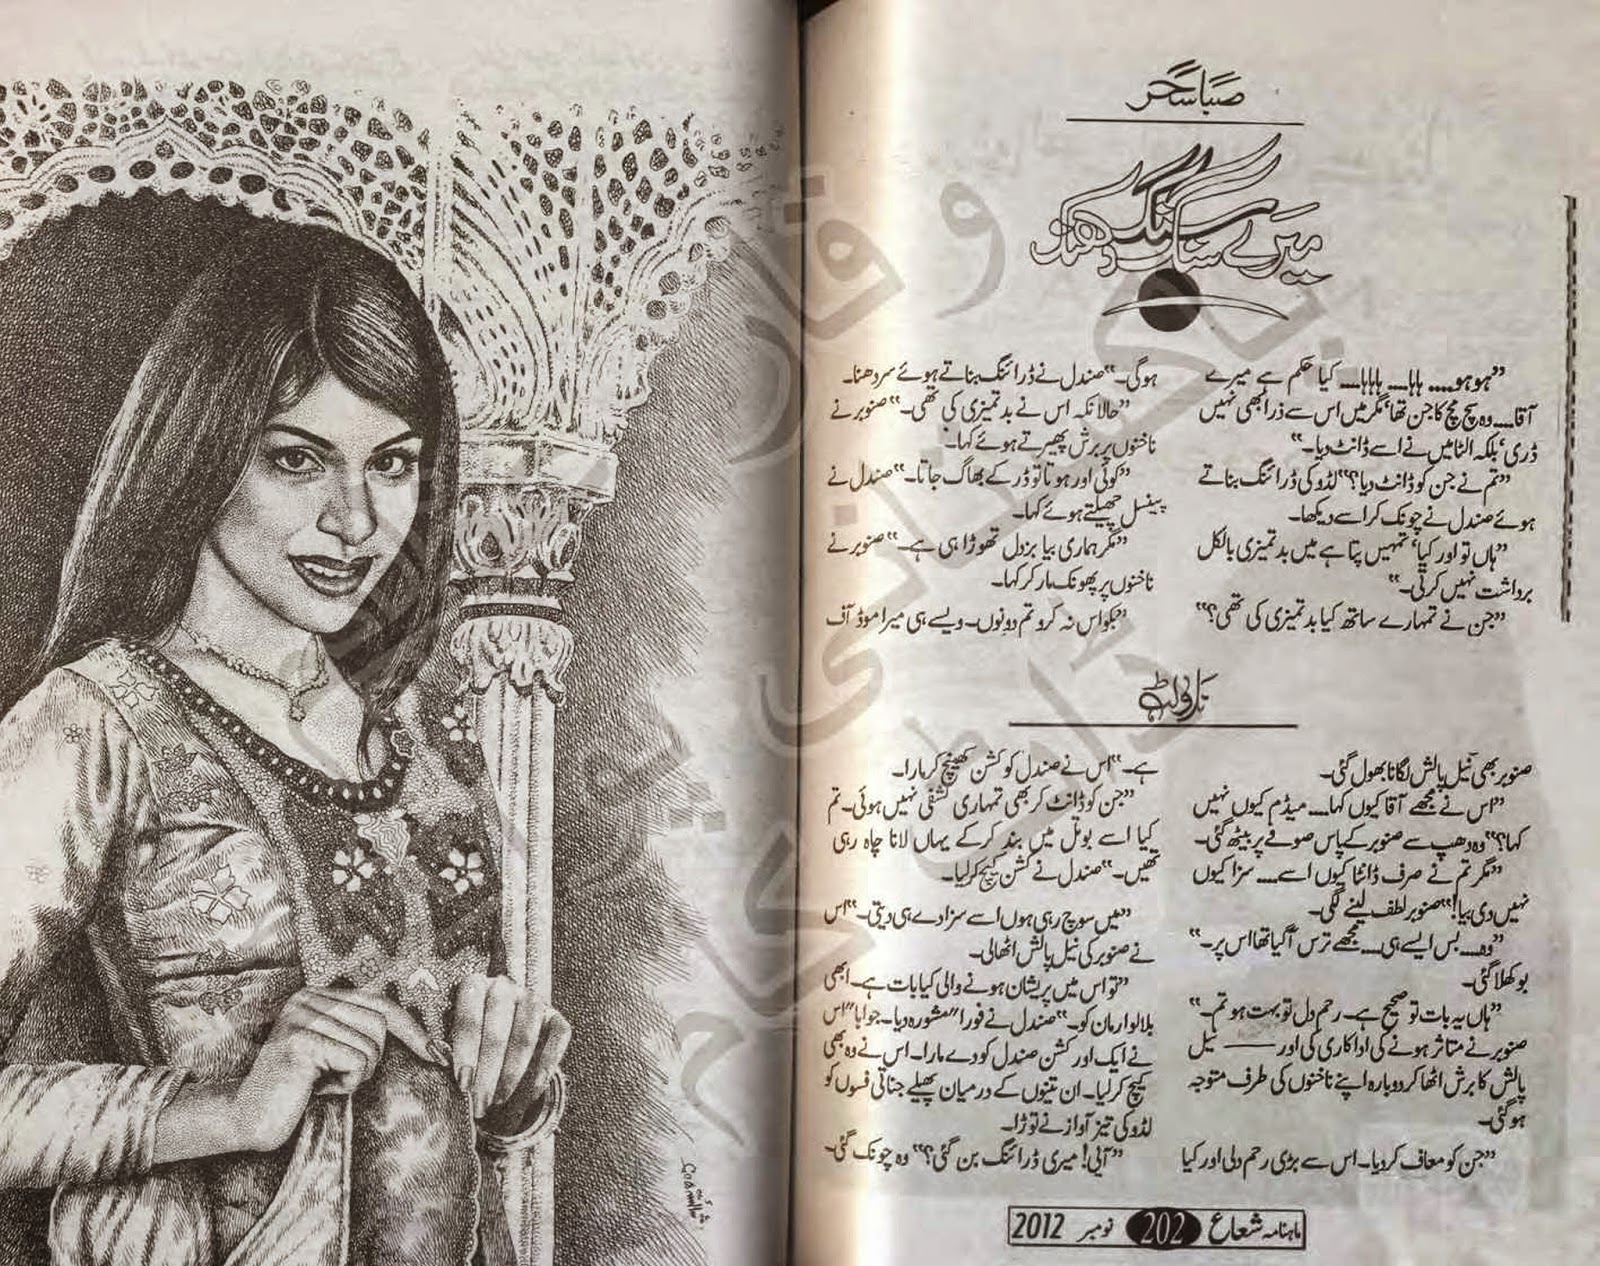 صبا سحر
میرے سنگ سنگ دھنک
”ہوہو.... ہاہا.... ہاہاہا.... کیا حکم ہے میرے
آقا.... وہ سچ مچ کا جن تھا، مگر میں اس سے ذرا بھی نہیں
ڈری، بلکہ الٹا میں نے اسے ڈانٹ دیا۔“
”تم نے جن کو ڈانٹ دیا؟“ لڈو کی ڈرائنگ بناتے
ہوئے صندل نے چونک کر اسے دیکھا۔
”ہاں تو اور کیا، تمہیں پتا ہے میں بدتمیزی بالکل
برداشت نہیں کرتی۔“
”جن نے تمہارے ساتھ کیا بدتمیزی کی تھی؟“
ہوگی۔“ صندل نے ڈرائنگ بناتے ہوئے سر دھنا۔
”حالانکہ اس نے بدتمیزی کی تھی۔“ صنوبر نے
ناخنوں پر برش پھیرتے ہوئے کہا۔
”کوئی اور ہوتا تو ڈر کے بھاگ جاتا۔“ صندل نے
پینسل چھیلتے ہوئے کہا۔
”مگر ہماری بیا بزدل تھوڑا ہی ہے۔“ صنوبر نے
ناخنوں پر پھونک مار کر کہا۔
”بکواس نہ کرو تم دونوں۔ ویسے ہی میرا موڈ آف
ناولٹ
صنوبر بھی نیل پالش لگانا بھول گئی۔
”اس نے مجھے آقا کیوں کہا.... میڈم کیوں نہیں
کہا؟“ وہ دھپ سے صنوبر کے پاس صوفے پر بیٹھ گئی۔
”مگر تم نے صرف ڈانٹا کیوں اسے.... سزا کیوں
نہیں دی بیا!“ صنوبر لطف لینے لگی۔
”وہ.... بس ایسے ہی.... مجھے ترس آگیا تھا اس پر۔“
بوکھلا گئی۔
”ہاں یہ بات تو صحیح ہے۔ رحم دل تو بہت ہو تم۔“
صنوبر نے متاثر ہونے کی اداکاری کی اور —— نیل
پالش کا برش اٹھا کر دوبارہ اپنے ناخنوں کی طرف متوجہ
ہوگئی۔
”جن کو معاف کردیا۔ اس سے بڑی رحم دلی اور کیا
ہے۔“ اس نے صندل کو کشن کھینچ کر مارا۔
”جن کو ڈانٹ کر بھی تمہاری تشفی نہیں ہوئی۔ تم
کیا اسے بوتل میں بند کرکے یہاں لانا چاہ رہی
تھیں۔“ صندل نے کشن کیچ کرلیا۔
”میں سوچ رہی ہوں اسے سزا دے ہی دیتی۔“ اس
نے صنوبر کی نیل پالش اٹھالی۔
”تو اس میں پریشان ہونے والی کیا بات ہے۔ ابھی
بلالو ارمان کو۔“ صندل نے فورا“ مشورہ دیا۔ جوابا“ اس
نے ایک اور کشن صندل کو دے مارا۔ اس نے وہ بھی
کیچ کرلیا۔ ان تینوں کے درمیان پھیلے جناتی فسوں کو
لڈو کی تیز آواز نے توڑا۔
”آپی! میری ڈرائنگ بن گئی؟“ وہ چونک گئی۔
ماہنامہ شعاع 202 نومبر 2012